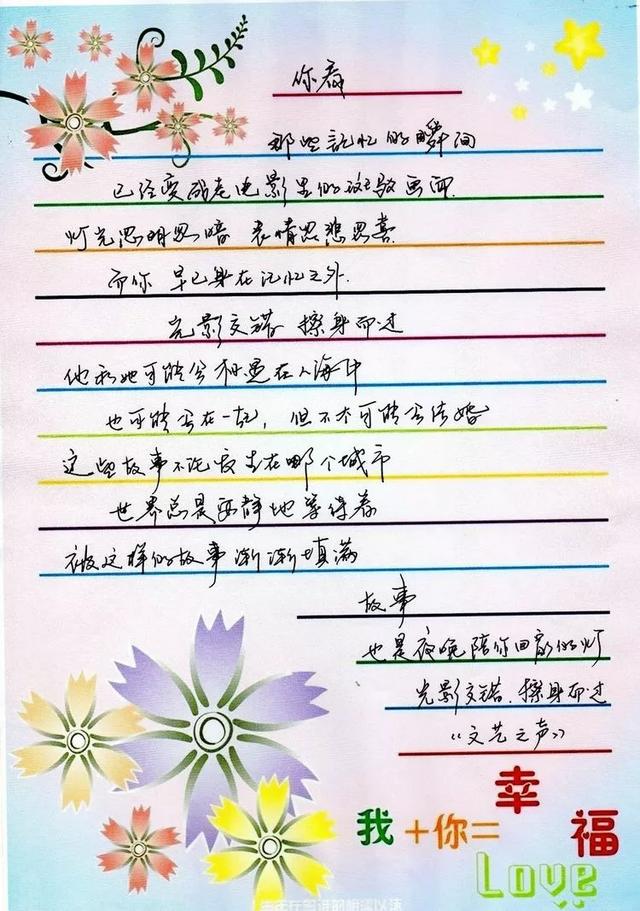 你看
那些记忆的瞬间
已经变成老电影里的斑驳画面.
灯光忽明忽暗 表情忽悲忽喜.
而你 早已身在记忆之外.
光影交错 擦身而过
他和她可能会相遇在人海中
也可能会在一起, 但不太可能会结婚
这些故事不论发生在哪个城市
世界总是安静地等待着
被这样的故事渐渐填满
故事
也是夜晚陪你回家的灯
光影交错.擦身而过
《文艺之声》
我+你=幸福
Love